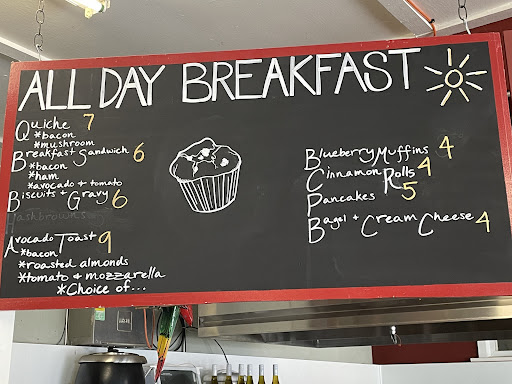 ALL DAY BREAKFAST
Quiche 7
*bacon
*mushroom
Breakfast Sandwich 6
*bacon
*ham
*avocado + tomato
Biscuits + Gravy 6
Hashbrowns
Avocado Toast 9
*bacon
*roasted almonds
*tomato + mozzarella
*Choice of...
Blueberry Muffins 4
Cinnamon Rolls 4
Pancakes 5
Bagel + Cream Cheese 4